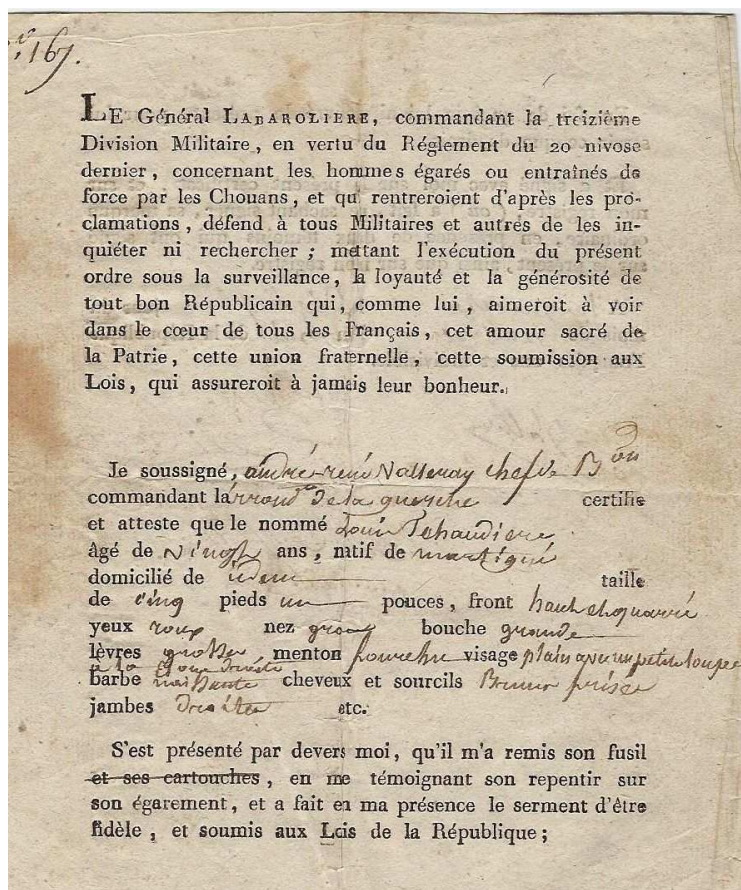 167.
LE Général LABAROLIERE, commandant la treizième
Division Militaire, en vertu du Réglement du 20 nivose
dernier, concernant les hommes égarés ou entraînés de
force par les Chouans, et qui rentreroient d'après les pro-
clamations, défend à tous Militaires et autres de les in-
quiéter ni rechercher ; mettant l'exécution du présent
ordre sous la surveillance, la loyauté et la générosité de
tout bon Républicain qui, comme lui, aimeroit à voir
dans le cœur de tous les Français, cet amour sacré de
la Patrie, cette union fraternelle, cette soumission aux
Lois, qui assureroit à jamais leur bonheur.
Je soussigné, andré-rené Valleray chef de B.on
commandant l'arrond.t de la guerche certifie
et atteste que le nommé Louis Tchaudiere
âgé de vingt ans, natif de martigné
domicilié de idem taille
de cinq pieds un pouces, front haut et quarré
yeux roux nez gros bouche grande
lèvres grosses menton fourchu visage plain avec un petit loupe
a la joue droite
barbe naissante cheveux et sourcils Bruns
jambes droites etc.
S'est présenté par devers moi, qu'il m'a remis son fusil
et ses cartouches, en me témoignant son repentir sur
son égarement, et a fait en ma présence le serment d'être
fidèle, et soumis aux Lois de la République ;